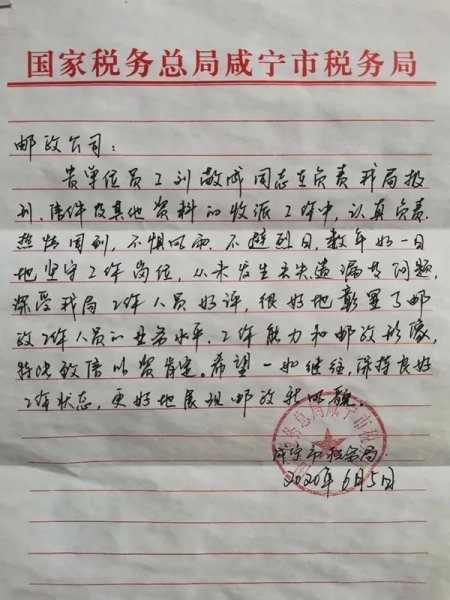 国家税务总局咸宁市税务局
邮政公司：
贵单位员工刘敬成同志在负责我局报
刊、信件及其他资料的收派工作中，认真负责、
热情周到，不惧风雨、不避烈日，数年如一日
地坚守工作岗位，从未发生丢失遗漏等问题，
深受我局工作人员好评，很好地彰显了邮
政工作人员的业务水平、工作能力和邮政形象，
特此致信以资肯定。希望一如继往，保持良好
工作状态，更好地展现邮政新风貌。
国家税务总局咸宁市税务局
咸宁市税务局
2020年6月5日